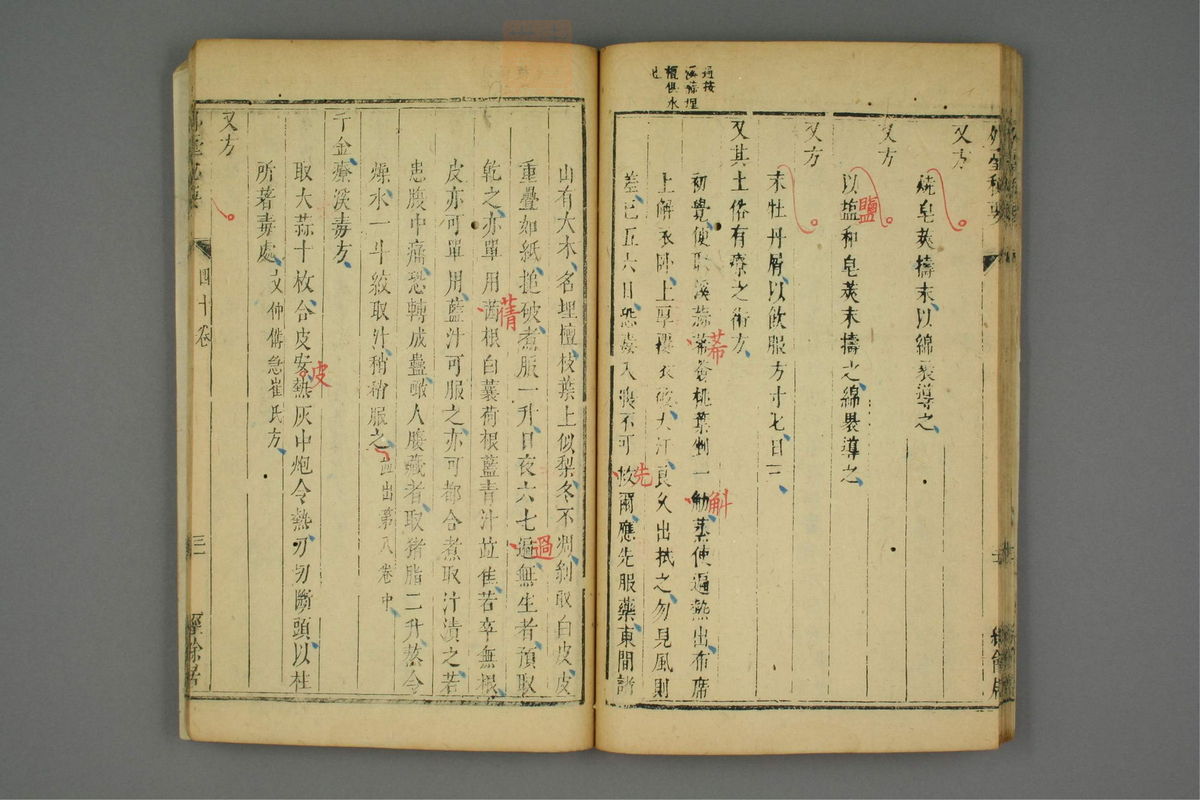 又方
燒皂莢擣末以綿裹導之
又方
以塩和皂莢末擣之綿裹導之
鹽
又方
末牡丹屑以飲服方寸匕日三
又其土俗有療之術方
初覺便取溪蒜莾蒼桃葉剉一觔蒸使遍熱出布席
莃
斛
上解衣卧上厚覆衣被大汗良久出拭之勿見風則
差已五六日恐毒入喪不可按爾應先服藥東間諸
先
山有大木名埋檀枝葉上似梨冬不凋剝取白皮皮
重疊如紙搥破煮服一升日夜六七遍無生者預取
過
乾之亦單用茜根白蘘荷根藍青汁並佳若卒無根
蒨
皮亦可單用藍汁可服之亦可都合煮取汁漬之若
患腹中痛恐轉成蠱噉人腹藏者取猪脂二升蒸令
燥水一斗絞取汁稍稍服之並出第八卷中
千金療溪毒方
取大蒜十枚合皮安熱灰中炮令熱刀切斷頭以柱
皮
所著毒處文仲備急崔氏方
又方
四十卷
三一
經餘居